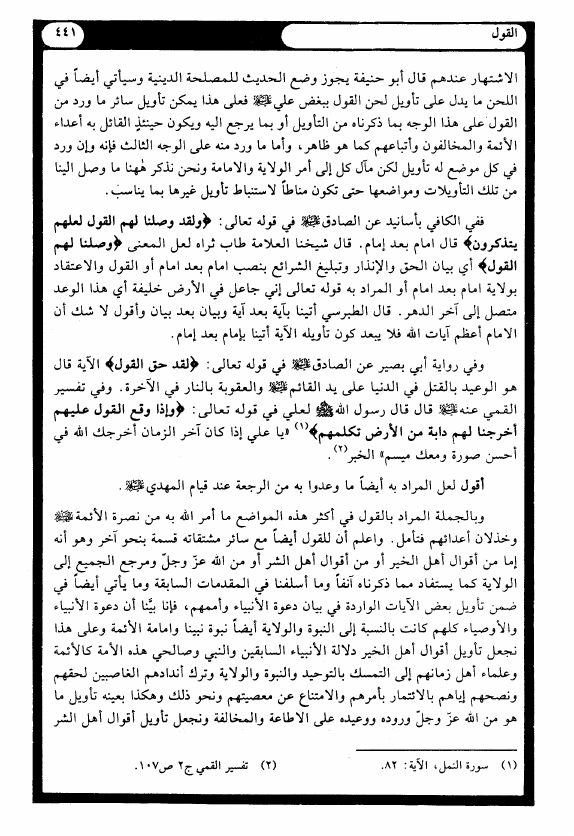 القول
٤٤١
الاشتهار عندهم قال أبو حنيفة يجوز وضع الحديث للمصلحة الدينية وسيأتي أيضاً في
اللحن ما يدل على تأويل لحن القول ببغض علي ﷺ فعلى هذا يمكن تأويل سائر ما ورد من
القول على هذا الوجه بما ذكرناه من التأويل أو بما يرجع اليه ويكون حينئذٍ القائل به أعداء
الأئمة والمخالفون وأتباعهم كما هو ظاهر، وأما ما ورد منه على الوجه الثالث فإنه وإن ورد
في كل موضع له تأويل لكن مآل كل إلى أمر الولاية والامامة ونحن نذكر ههنا ما وصل الينا
من تلك التأويلات ومواضعها حتى تكون مناطاً لاستنباط تأويل غيرها بما يناسب.
ففي الكافي بأسانيد عن الصادق ﷺ في قوله تعالى: ﴿ولقد وصلنا لهم القول لعلهم
يتذكرون﴾ قال امام بعد إمام. قال شيخنا العلامة طاب ثراه لعل المعنى ﴿وصلنا لهم
القول﴾ أي بيان الحق والإنذار وتبليغ الشرائع بنصب امام بعد امام أو القول والاعتقاد
بولاية امام بعد امام أو المراد به قوله تعالى إني جاعل في الأرض خليفة أي هذا الوعد
متصل إلى آخر الدهر. قال الطبرسي أتينا بآية بعد آية وبيان بعد بيان وأقول لا شك أن
الامام أعظم آيات الله فلا يبعد كون تأويله الآية أتينا بإمام بعد إمام.
وفي رواية أبي بصير عن الصادق ﷺ في قوله تعالى: ﴿لقد حق القول﴾ الآية قال
هو الوعيد بالقتل في الدنيا على يد القائم ﷺ والعقوبة بالنار في الآخرة. وفي تفسير
القمي عنه ﷺ قال قال رسول الله ﷺ لعلي في قوله تعالى: ﴿وإذا وقع القول عليهم
أخرجنا لهم دابة من الأرض تكلمهم﴾(١) «يا علي إذا كان آخر الزمان أخرجك الله في
أحسن صورة ومعك ميسم» الخبر(٢).
أقول لعل المراد به أيضاً ما وعدوا به من الرجعة عند قيام المهدي ﷺ.
وبالجملة المراد بالقول في أكثر هذه المواضع ما أمر الله به من نصرة الأئمة ﷺ
وخذلان أعدائهم فتأمل. واعلم أن للقول أيضاً مع سائر مشتقاته قسمة بنحو آخر وهو أنه
إما من أقوال أهل الخير أو من أقوال أهل الشر أو من الله عزّ وجلّ ومرجع الجميع إلى
الولاية كما يستفاد مما ذكرناه آنفاً وما أسلفنا في المقدمات السابقة وما يأتي أيضاً في
ضمن تأويل بعض الآيات الواردة في بيان دعوة الأنبياء وأممهم، فإنا بيَّنا أن دعوة الأنبياء
والأوصياء كلهم كانت بالنسبة إلى النبوة والولاية أيضاً نبوة نبينا وامامة الأئمة وعلى هذا
نجعل تأويل أقوال أهل الخير دلالة الأنبياء السابقين والنبي وصالحي هذه الأمة كالأئمة
وعلماء أهل زمانهم إلى التمسك بالتوحيد والنبوة والولاية وترك أندادهم الغاصبين لحقهم
ونصحهم إياهم بالائتمار بأمرهم والامتناع عن معصيتهم ونحو ذلك وهكذا بعينه تأويل ما
هو من الله عزّ وجلّ وروده ووعيده على الاطاعة والمخالفة ونجعل تأويل أقوال أهل الشر
(١) سورة النمل، الآية: ٨٢.
(٢) تفسير القمي ج٢ ص١٠٧.